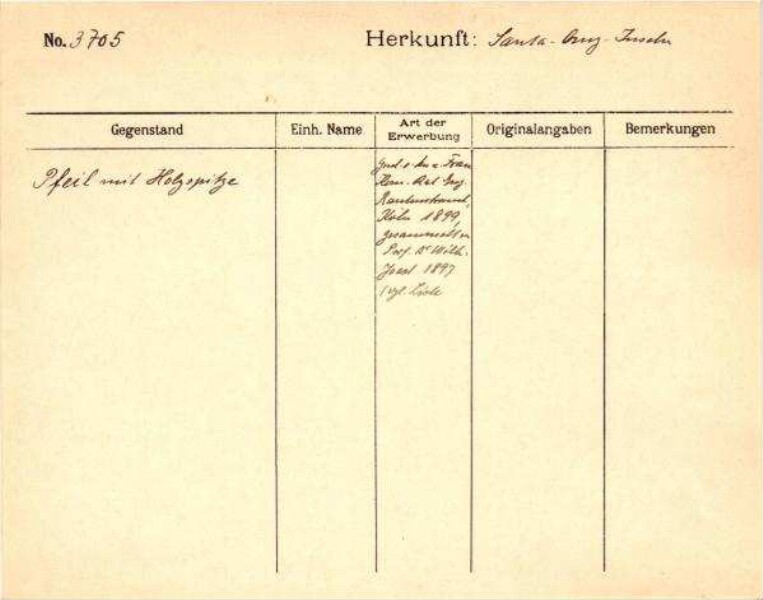 No. 3705 Herkunft: Santa-Cruz-Inseln
Gegenstand Einh. Name Art der Erwerbung Originalangaben Bemerkungen
Pfeil mit Holzspitze
Frau
Kom.-Rat Eug.
Rautenstrauch,
Köln 1899,
gesammelt v.
Prof. Dr Wilh.
Joest 1897
(vgl. Liste